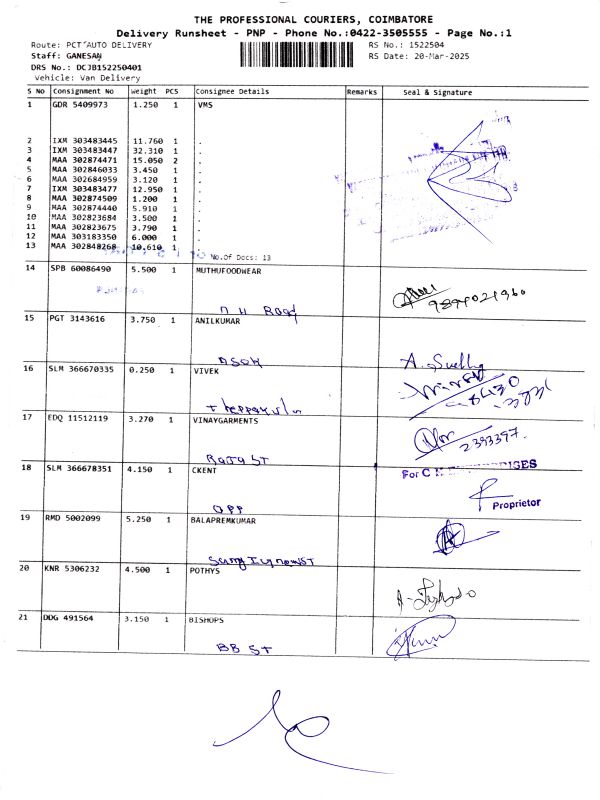 THE PROFESSIONAL COURIERS, COIMBATORE
Delivery Runsheet - PNP - Phone No.:0422-3505555 - Page No.:1
Route: PCT AUTO DELIVERY RS No.: 1522504
Staff: GANESAN RS Date: 20-Mar-2025
DRS No.: DCJB152250401
Vehicle: Van Delivery
S No Consignment No Weight PCS Consignee Details Remarks Seal & Signature
1 GDR 5409973 1.250 1 VMS
2 IXM 303483445 11.760 1 .
3 IXM 303483447 32.310 1 .
4 MAA 302874471 15.050 2 .
5 MAA 302846033 3.450 1 .
6 MAA 302684959 3.120 1 .
7 IXM 303483477 12.950 1 .
8 MAA 302874509 1.200 1 .
9 MAA 302874440 5.910 1 .
10 MAA 302823684 3.500 1 .
11 MAA 302823675 3.790 1 .
12 MAA 303183350 6.000 1 .
13 MAA 302848268 10.610 1 .
No.Of Docs: 13
14 SPB 60086490 5.500 1 MUTHUFOODWEAR
15 PGT 3143616 3.750 1 ANILKUMAR
ASOK
16 SLM 366670335 0.250 1 VIVEK
17 EDQ 11512119 3.270 1 VINAYGARMENTS
2393397
Raja ST
18 SLM 366678351 4.150 1 CKENT
For C
Proprietor
OPP
19 RMD 5002099 5.250 1 BALAPREMKUMAR
20 KNR 5306232 4.500 1 POTHYS
21 DDG 491564 3.150 1 BISHOPS
BB ST